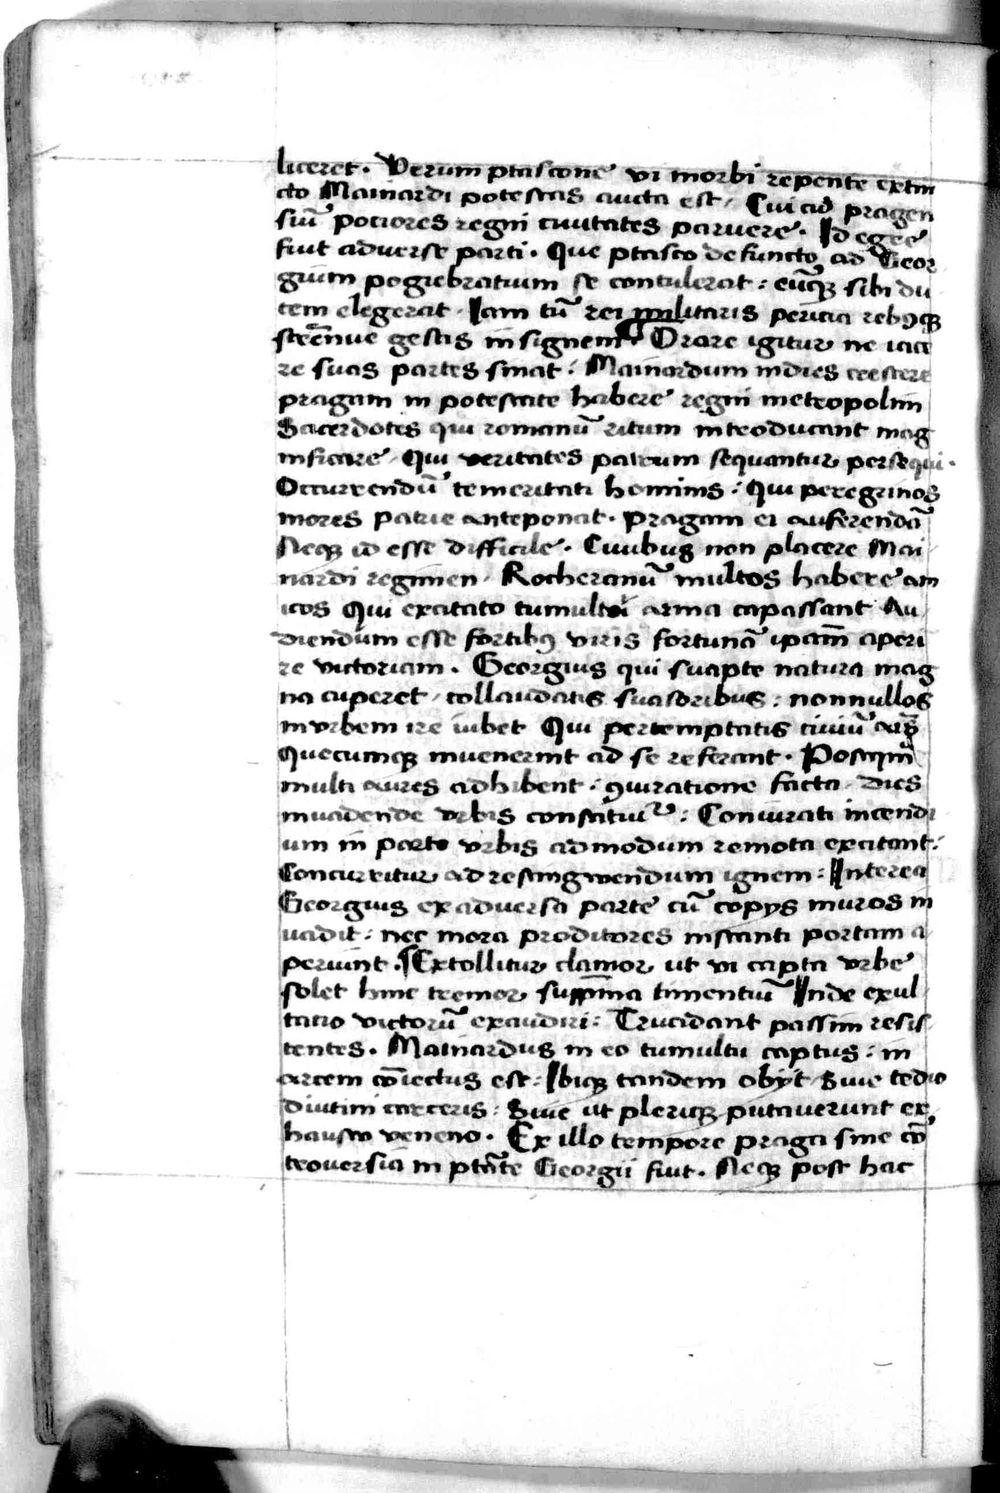 liceret. Verum ptascone vi morbi repente extin
cto Mainardi potestas aucta est, Cui ad pragen
siū pociores regni ciuitates paruere. Id egre
fuit aduerse parti. Que ptasco defuncto ad Geor
gium pogiebratium se contulerat: eūq̄ sibi du
cem elegerat. Iam tū rei militaris pericia rebꝯq̄
strēnue gestis insignem Orare igitur ne iace
re suas partes sinat: Mainardum indies crescere
pragam in potestate habere regni metropolim
Sacerdotes qui romanū ritum introducant mag
nificare, Qui veritates patrum sequantur persequi.
Occurrendū temeritati hominis: Qui peregrinos
mores patrie anteponat. pragam ei auferendā
Neq̄ id esse difficile. Ciuibus non placere Mai
nardi regimen, Rocheranū multos habere am
icos Qui excitato tumultu arma capassant Au
diendum esse fortibꝯ viris fortunā ipam̄ aperi
re victoriam. Georgius qui suapte natura mag
na cuperet, collaudatis suasoribus: nonnullos
in vrbem ire iubet Qui pertemptatis ciuiū
Quecumq̄ inuenerint ad se referant. Postqm̄
multi aures adhibent: ꝯiuratione facta, dies
inuadende vrbis constituit᷑: Coniurati incendi
um in parte vrbis admodum remota excitant:
Concurritur ad restingwendum ignem: Interea
Georgius ex aduersa parte cū copys muros in
uadit: nec mora proditores instanti portam a
periunt. ¶Extollitur clamor, ut vi capta vrbe
solet hinc tremor, timentiū Inde exul
tatio victorū exaudiri: Trucidant passim resis
tentes. Mainardus in eo tumultu captus: in
arcem cōiectus est: Ibiq̄ tandem obyt Siue tedio
diutini carceris: Siue ut pleriq̄ putauerunt ex
hausto veneno. Ex illo tempore praga sine cō
trouersia in ptāte Georgii fuit. Neq̄ post hac